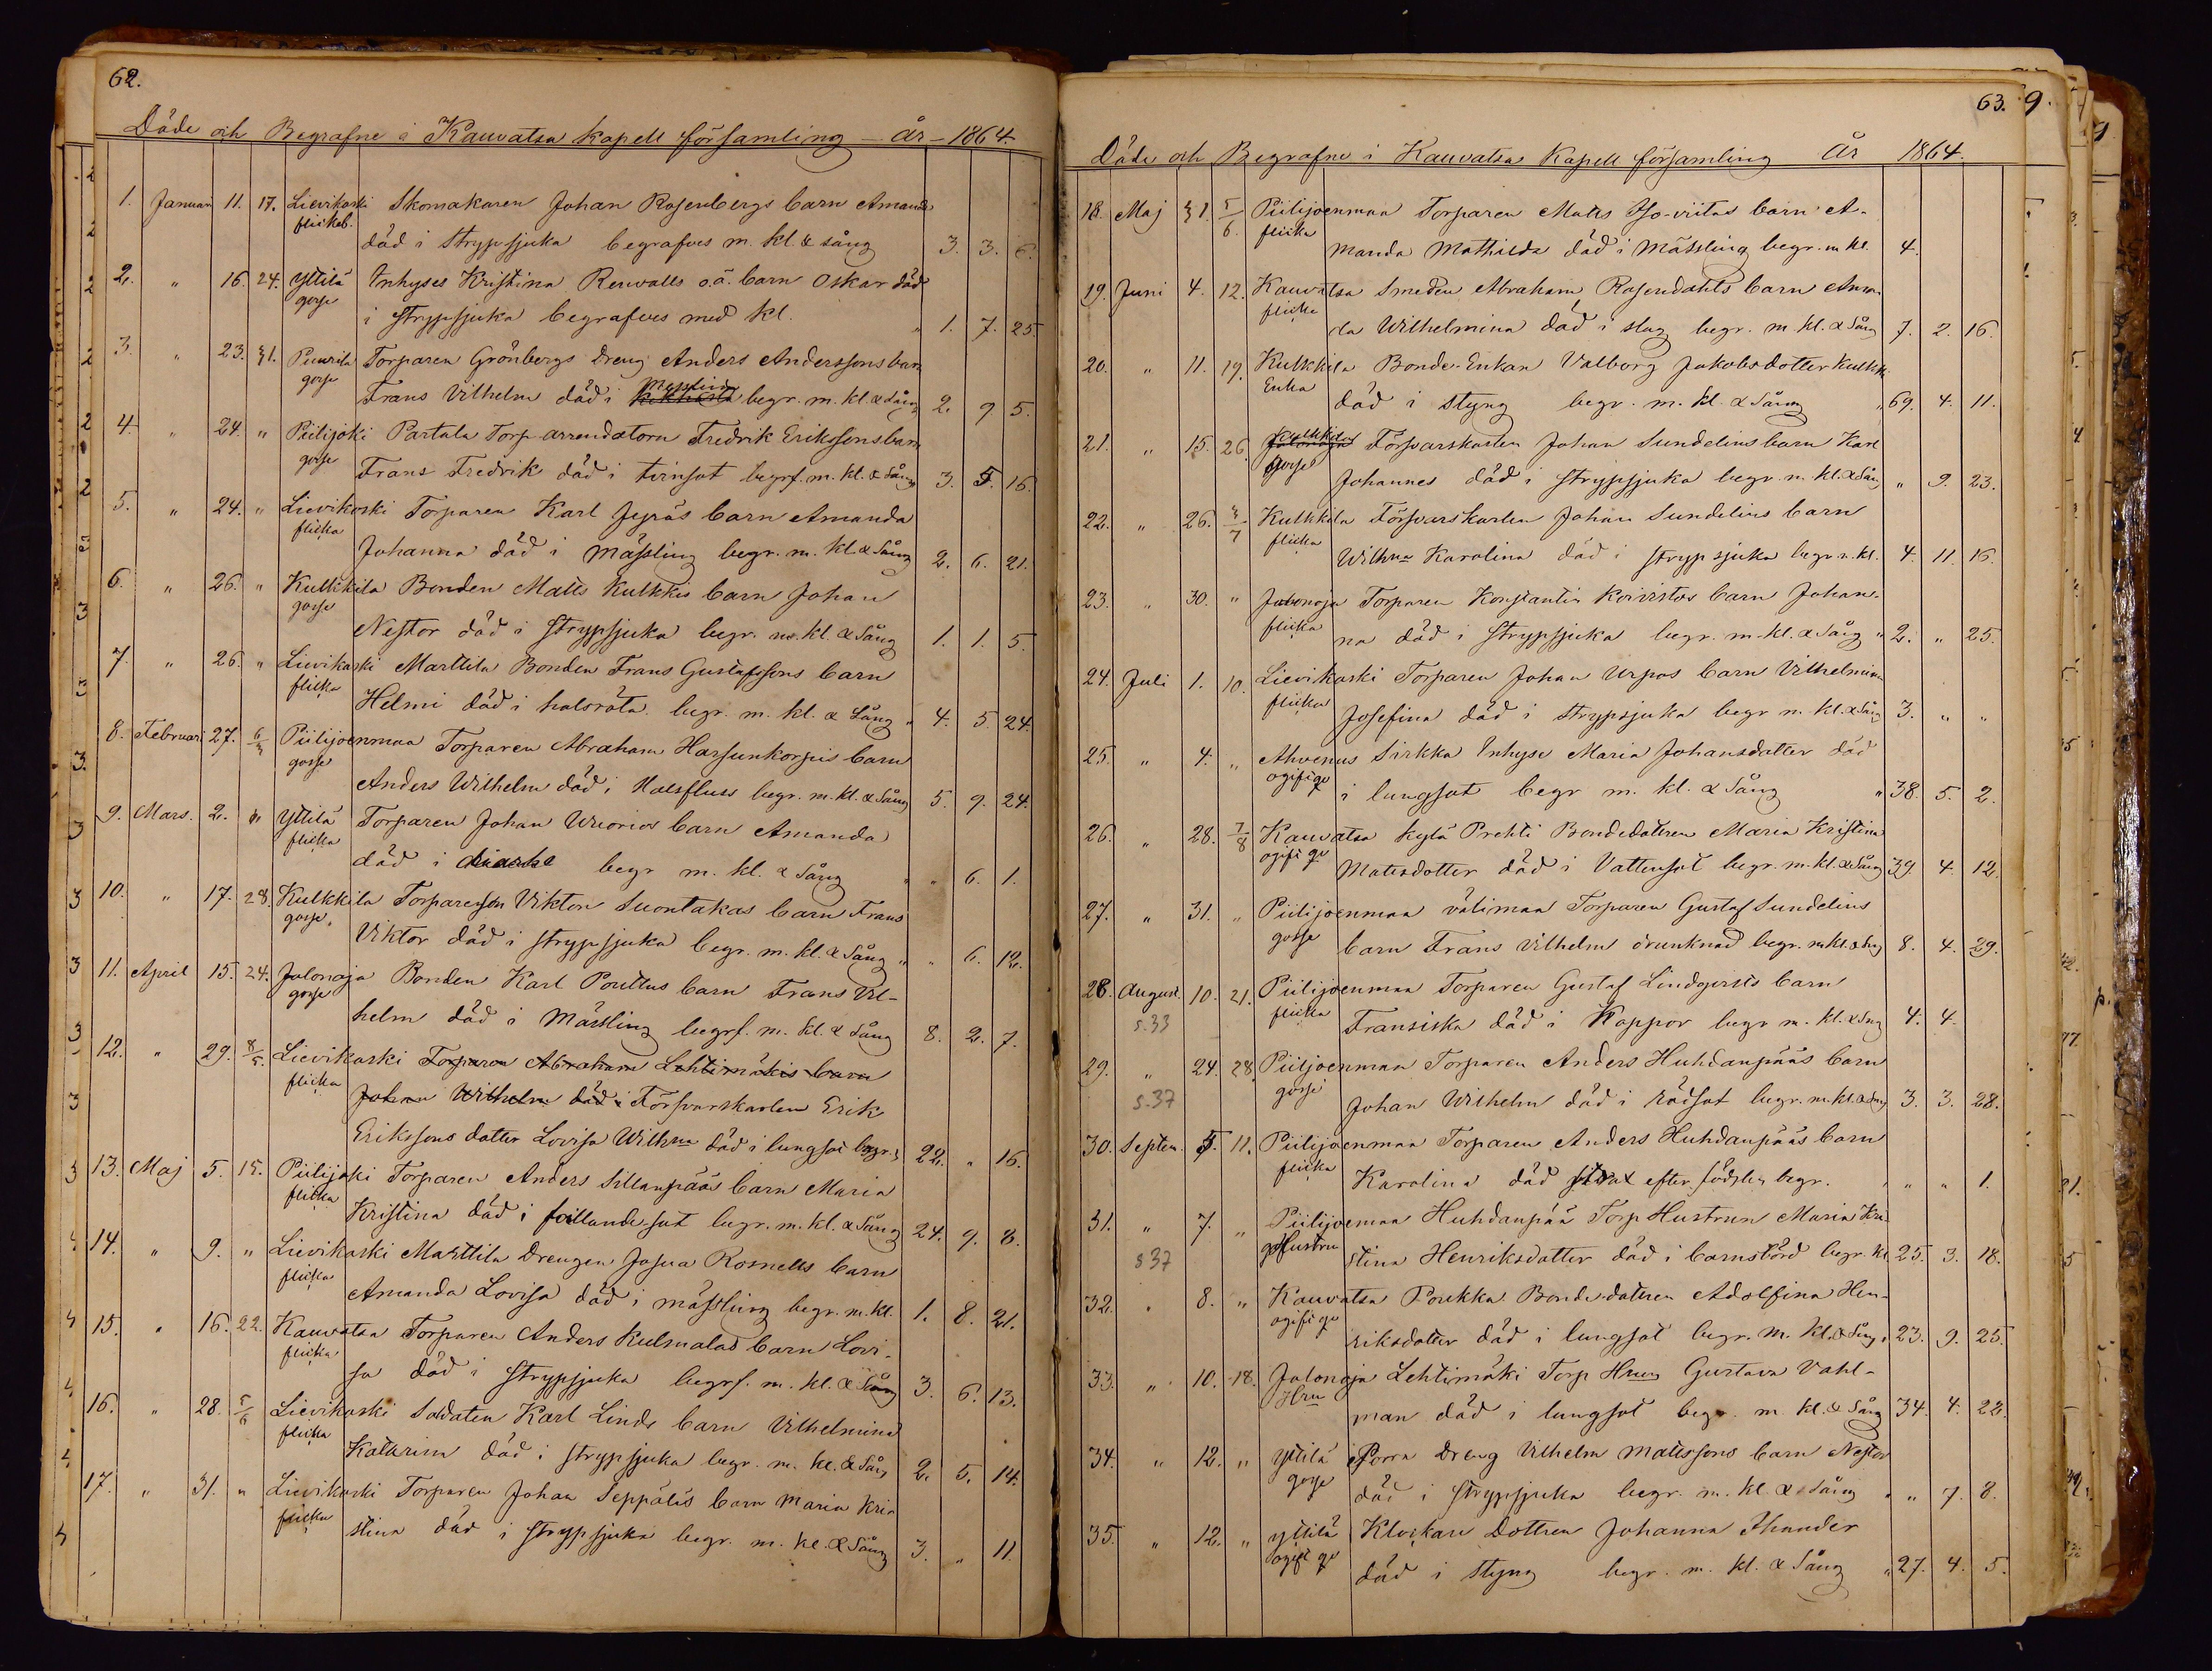 62.
Döde och Begrafne i Kauvatsa kapell församling – år – 1864.
1. Januari 11. 17. Lievikoski Skomakaren Johan Rosenbergs barn Amanda
flickeb. död i strypsjuka begrafves m. kl. & sång 3. 3. 6.
2. " 16. 24. Yttilä Inhyses Kristina Renvalls o.ä. barn Oskar död
gosse i strypsjuka begrafves med kl. " 1. 7. 25
3. " 23. 31. Puurila Torparen Grönbergs dreng Anders Anderssons barn
gosse Frans Vilhelm död i Messling begr. m. kl. & Sång 2. 9 5.
4. " 24. " Piilijoki Partala Torp arrendatorn Fredrik Erikssons barn
gosse Frans Fredrik död i tvinsot begrf. m. kl. & Sång 3. 5. 16.
5. " 24. " Lievikoski Torparen Karl Jyräs barn Amanda
flicka Johanna död i mässling begr. m. kl. & Sång 2. 6. 21.
6. " 26. " Kulkkila Bonden Matts Kulkkis barn Johan
gosse Nestor död i strypsjuka begr. m. kl. & Sång 1. 1. 5.
7. " 26. " Lievikoski Marttila Bonden Frans Gustafssons barn
flicka Helmi död i halsröta begr. m. kl. & Sång " 4. 5 24.
8. Februari 27. 6/3 Piilijoenmaa Torparen Abraham Harsunkorpis barn
gosse Anders Wilhelm död i Halsfluss begr. m. kl. & Sång 5. 9. 24.
9. Mars. 2. " Yttilä Torparen Johan Wuorios barn Amanda
flicka död i diarhe begr m. kl. & Sång " " 6. 1.
10. " 17. 28. Kulkkila Torparesson Viktor Suontakas barn Frans
gosse. Viktor död i strypsjuka begr. m. kl. & Sång " " 6. 12.
11. April 15. 24. Jalonoja Bonden Karl Pouttus barn Frans Vil-
gosse helm död i Mässling begrf. m. kl. & Sång 8. 2. 7.
12. " 29. 8/5. Lievikoski Torparen Abraham Lehtimäkis barn
flicka Johan Wilhelm död i Försvarskarlen Erik
Erikssons dotter Lovisa Wilhna död i lungsot begr. 22. " 16.
13. Maj 5. 15. Piilijoki Torparen Anders Sillanpääs barn Maria
flicka Kristina död i fallandesot begr. m. kl. & Sång 24. 9. 8.
14. " 9. " Lievikoski Marttila Drengen Josua Rosnells barn
flicka Amanda Lovisa död i mässling begr. m. kl. 1. 8. 21.
15. " 16. 22. Kauvatsa Torparen Anders Kulmalas barn Lovi-
flicka sa död i strypsjuka begrf. m. kl. & Sång 3. 6. 13.
16. " 28. 5/6 Lievikoski Soldaten Karl Linds barn Vilhelmina
flicka Katarina död i strypsjuka begr. m. kl. & Sång 2. 5. 14.
17. " 31. " Lievikoski Torparen Johan Seppäläs barn Maria Kri-
flicka stina död i strypsjuka begr. m. kl. & Sång 3. " 11.
63.
Döde och Begrafne i Kauvatsa Kapell församling År 1864.
18. Maj 31. 5/6. Piilijoenmaa Torparen Matts Iso-riitas barn A-
flicka manda Mathilda död i Mässling begr. m kl. 4.
19. Juni 4. 12. Kauvatsa Smeden Abraham Rosendahls barn Aman-
flicka da Wilhelmina död i slag begr. m. kl. & Sång 7. 2. 16.
20. " 11. 19. Kulkkila Bonde-Enkan Valborg Jakobsdotter Kulkki
Enka död i styng begr. m. kl. & Sång " 69. 4. 11.
21. " 15. 26. Kulkkila Försvarskarlen Johan Sundelins barn Karl
gosse Johannes död i strypsjuka begr. m. kl. & Sång " 9. 23.
22. " 26. 3/7 Kulkkila Försvarskarlen Johan Sundelins barn
flicka Wilhna Karolina död i strypsjuka begr m. kl. 4. 11. 16.
23. " 30. " Jalonoja Torparen Konstantin Koivistos barn Johan-
flicka na död i strypsjuka begr. m. kl. & Sång " 2. " 25.
24. Juli 1. 10. Lievikoski Torparen Johan Urpos barn Vilhelmina
flicka Josefina död i strypsjuka begr m. kl. & Sång 3. " "
25. " 4. " Ahvenus Sirkka Inhyse Maria Johansdotter död
ogift qv i lungsot begr m. kl. & Sång " 38. 5. 2.
26. " 28. 7/8 Kauvatsa kylä Prehti Bondedottren Maria Kristina
ogift qv Matsdotter död i Vattensot begr. m. kl. & Sång 39. 4. 12.
27. " 31. " Piilijoenmaa välimaa Torparen Gustaf Sundelins
gosse barn Frans Vilhelm drunknad begr. m. kl. & Sng 8. 4. 29.
28. August. 10. 21. Piilijoenmaa Torparen Gustaf Lindqvists barn
s. 33 flicka Fransiska död i Koppor begr m. kl. & Sng 4. 4.
29. " 24. 28. Piilijoenmaa Torparen Anders Huhdanpääs barn
s. 37 gosse Johan Wilhelm död i rödsot begr. m. kl. & Sng 3. 3. 28.
30. Septem. 5. 11. Piilijoenmaa Torparen Anders Huhdanpääs barn
flicka Karolina död strax efter födseln begr. " " " 1.
31. " 7. " Piilijoenmaa Huhdanpää Torp Hustrun Maria Kri-
s 37 Hustru stina Henriksdotter död i barnsbörd begr. kl 25. 3. 18.
32. " 8. " Kauvatsa Poukka Bondedottren Adolfina Hen-
ogift qv riksdotter död i lungsot begr. m. kl. & Sång. 23. 9. 25.
33. " 10. 18. Jalonoja Lehtimäki Torp Hrun Gustava Vahl-
Hru man död i lungsot begr. m. kl. & Sång 34. 4. 22.
34. " 12. " Yttilä Porra Dreng Vilhelm Matssons barn Nestor
gosse död i strypsjuka begr. m. kl. & Sång " " 7. 8.
35. " 12. " Yttilä Klockare Dottren Johanna Thunder
ogift qv död i styng begr. m. kl. & Sång " 27. 4. 5.